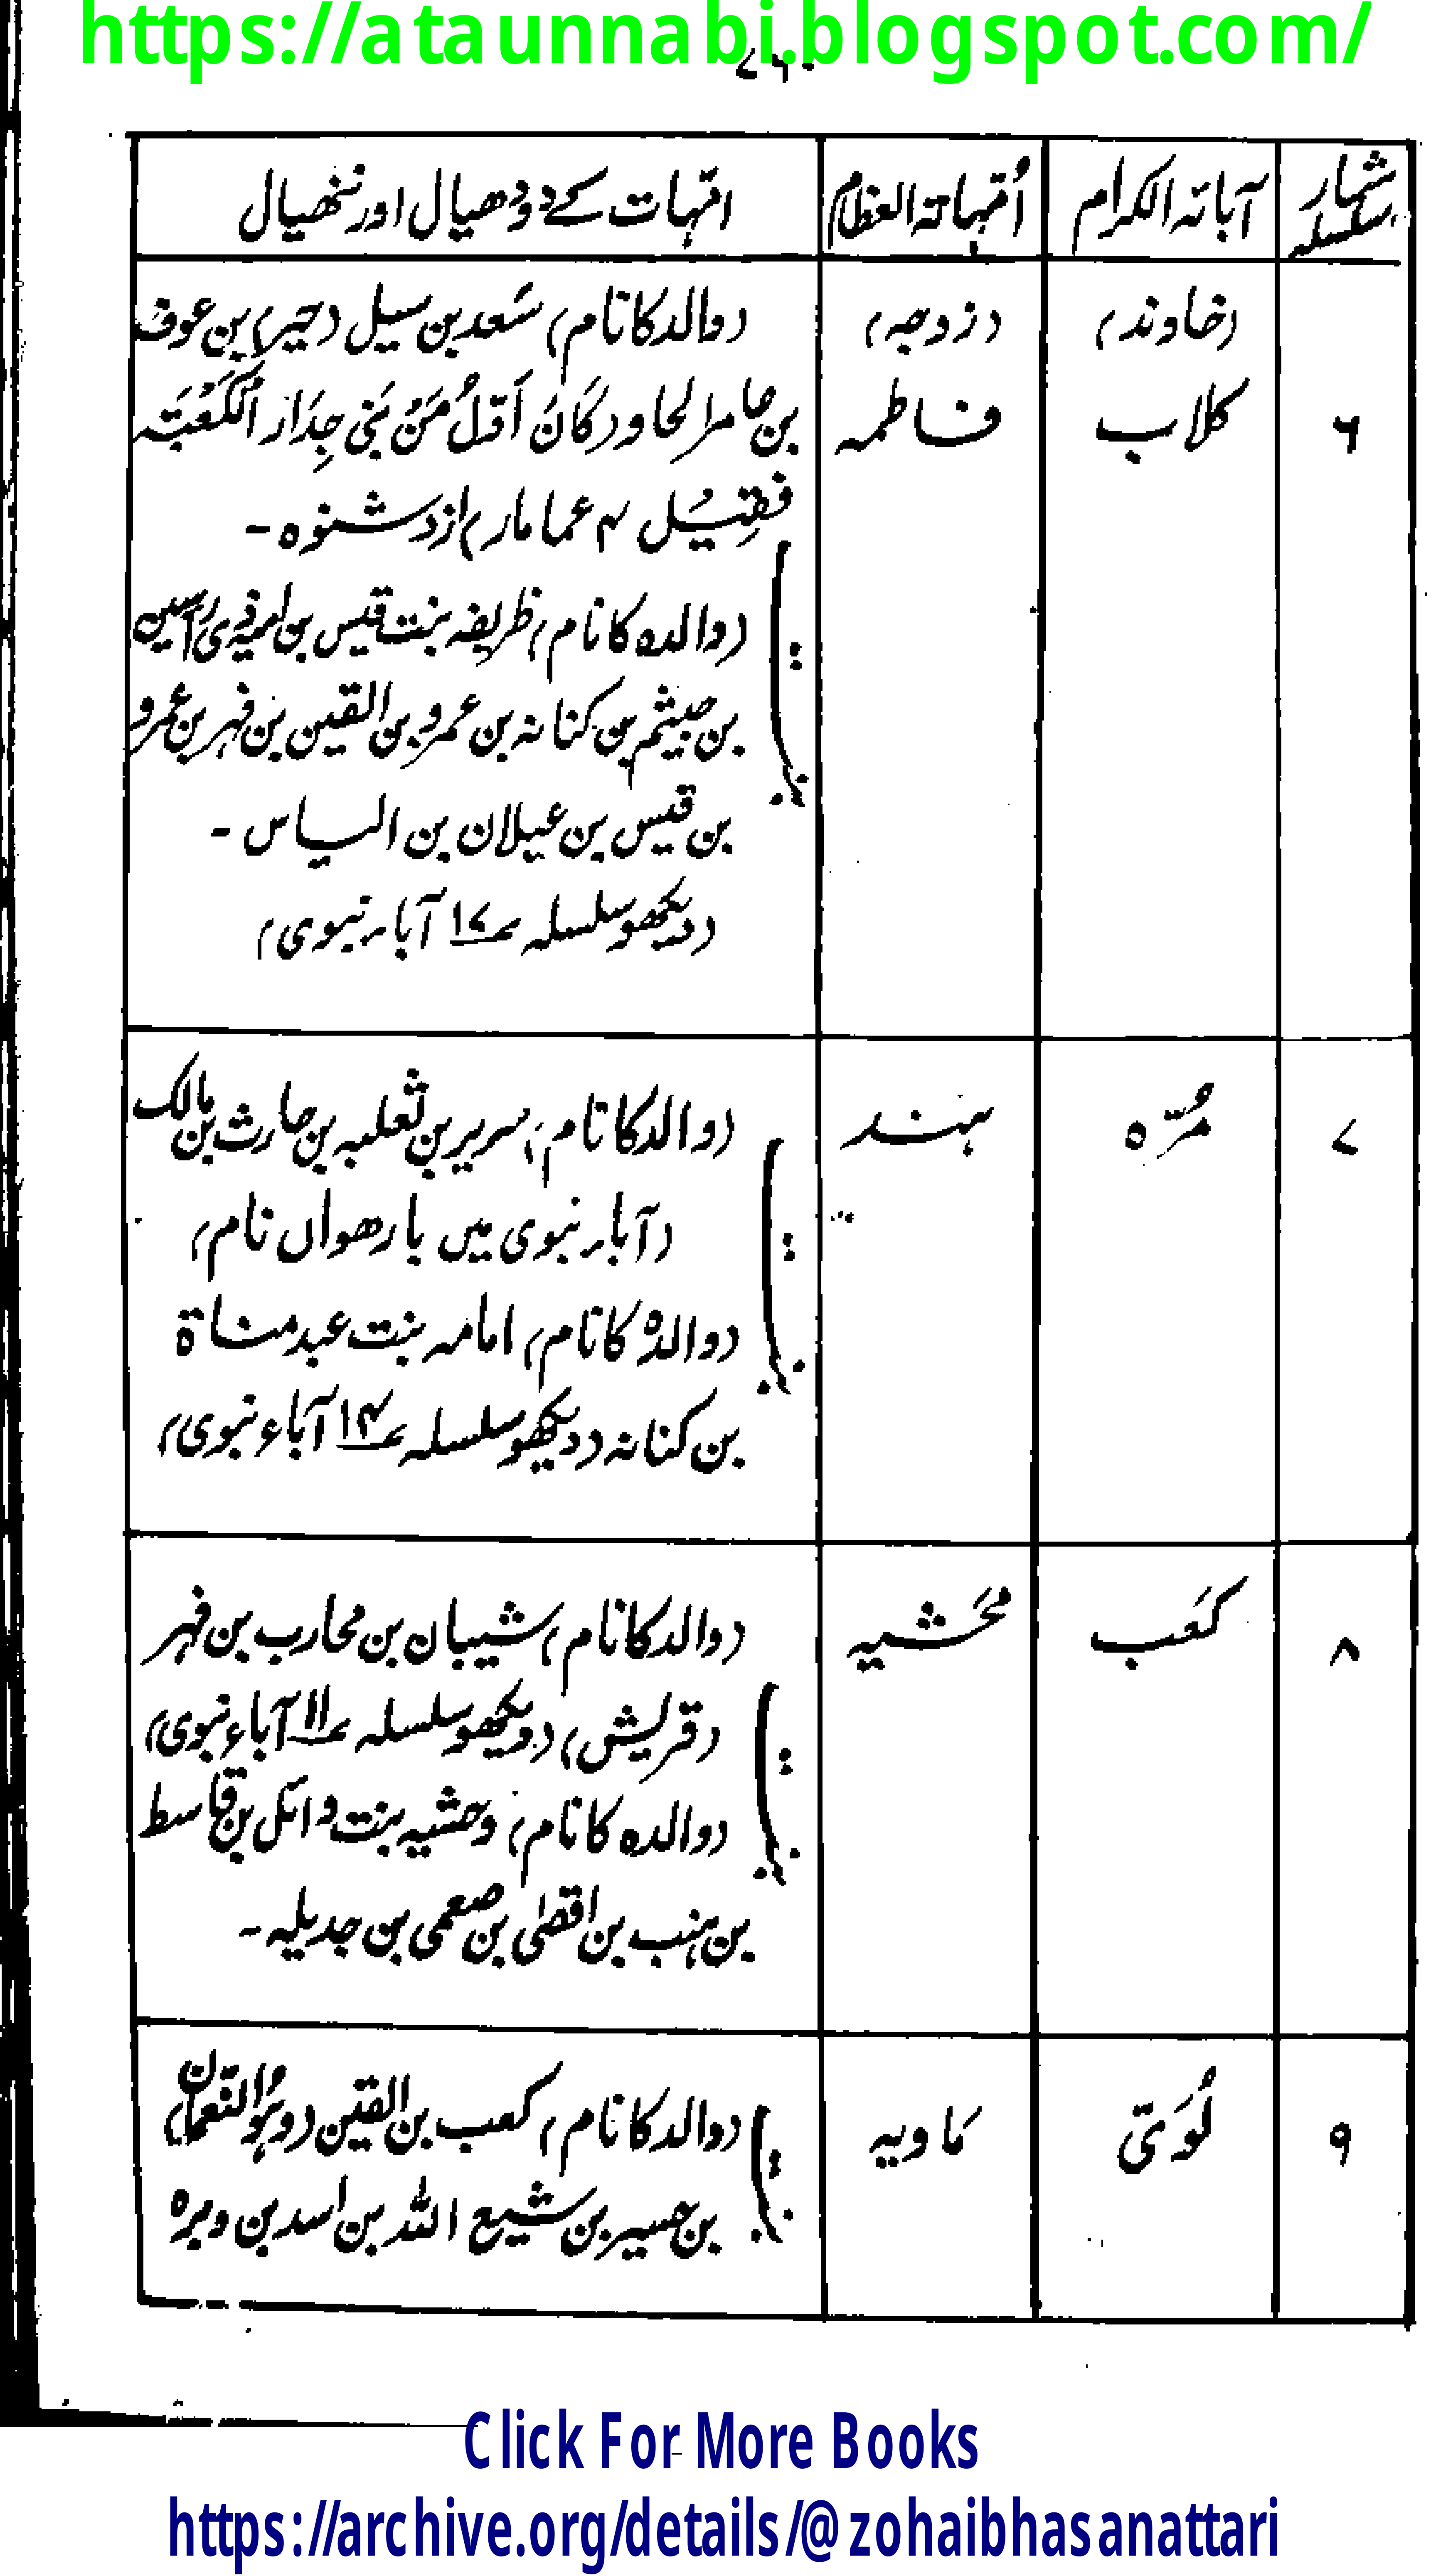 https://ataunnabi.blogspot.com/
۷۶۰
شمار سلسلہ
آبائہ الکرام
اُمّہاتہ العظام
امّہات کے ددھیال اور ننھیال
۶
(خاوند)
کلاب
(زوجہ)
فاطمہ
(والد کا نام) سَعد بن سیل (خیر) بن عوف
بن عامر الحاود (کَانَ اَوّلُ مَنْ بَنٰی جِدَارَ الْکَعْبَتہ
فقِیْل لہ عما مار) ازد شنوہ ۔
(والدہ کا نام) ظریفہ بنت قیس بن امیہ ذی رآسین
بن جیثم بن کنانہ بن عمرو بن القین بن فہر بن عمرو
بن قیس بن عیلان بن الیاس ۔
(دیکھو سلسلہ ۱۷ آباء نبوی)
۷
مُرّہ
ہند
(والد کا نام) سریر بن ثعلبہ بن حارث بن مالک
(آباء نبوی میں بارھواں نام)
(والدہ کا نام) امامہ بنت عبد مناۃ
بن کنانہ (دیکھو سلسلہ ۱۴ آباء نبوی)
۸
کعَب
مَحَشیہ
(والد کا نام) شیبان بن محارب بن فہر
(قریش) (دیکھو سلسلہ ۱۱ آباء نبوی)
(والدہ کا نام) وحشیہ بنت وائل بن قاسط
بن ہنب بن اقصٰی بن صعمی بن جدیلہ ۔
۹
لُوَیّ
مَاویہ
(والد کا نام) کعب بن القین (وہُوَ النّعمان)
بن جسیر بن شیع اللہ بن اسد بن وبرہ
Click For More Books
https://archive.org/details/@zohaibhasanattari